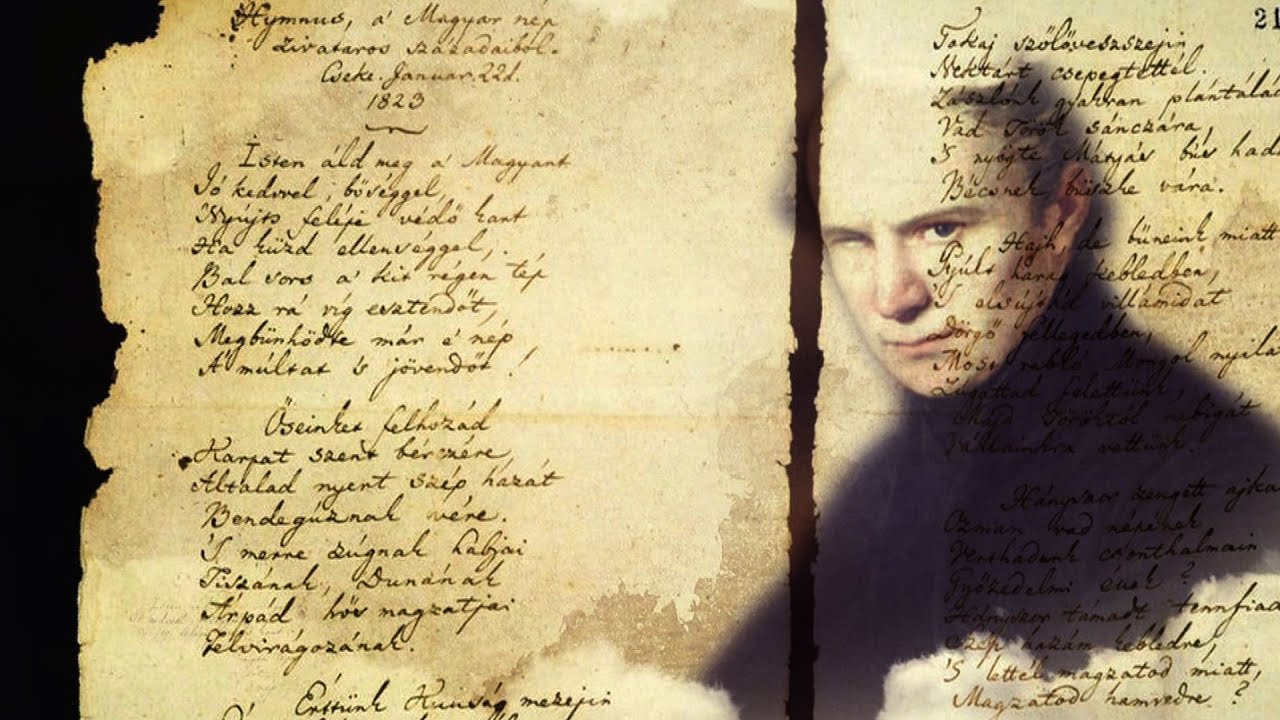 Hymnus, a' Magyar nép
Zivataros századaiból.
Cseke. Januar. 22d.
1823
Isten áld meg a' Magyart
Jó kedvvel, bőséggel,
Nyújts feléje védő kart
Ha küzd ellenséggel,
Bal sors a' kit régen tép
Hozz rá víg esztendőt,
Megbünhödte már e' nép
A' múltat 's jövendőt!
Őseinket felhozád
Karpat szent bérczére,
Általad nyert szép hazát
Bendegúznak vére.
'S merre zúgnak habjai
Tiszának, Dunának
Árpád hős magzatjai
Felvirágozának.
Értünk Kunság mezejin
21
Tokaj szőlőveszszejin
Nektárt csepegtettél.
Zászlónk gyakran plántálád
Vad Török sánczára,
'S nyögte Mátyás bús hadá
Bécsnek büszke vára.
Hajh, de bűneink miatt
Gyúlt harag kebledben,
'S elsújtád villámidat
Dörgő fellegedben,
Most rabló Mongol nyilá
Zúgattad felettünk,
Majd Töröktől rabigát
Vállainkra vettünk.
Hányszor zengett ajka
Ozman vad népének
Vert hadunk csonthalmain
Győzedelmi ének?
Hányszor támadt tennfiad
Szép hazám kebledre,
'S lettél magzatod miatt,
Magzatod hamvedre?